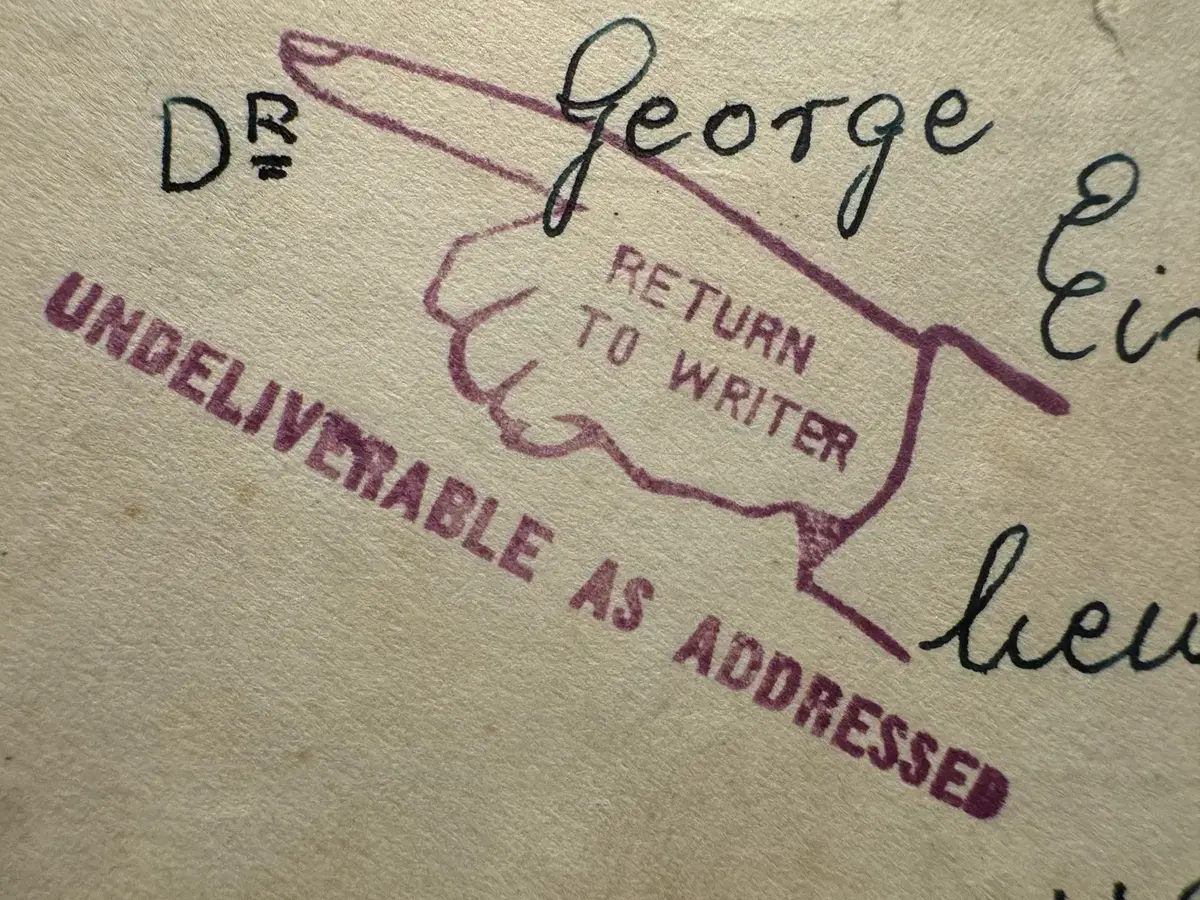 DR George
RETURN
TO WRITER
UNDELIVERABLE AS ADDRESSED